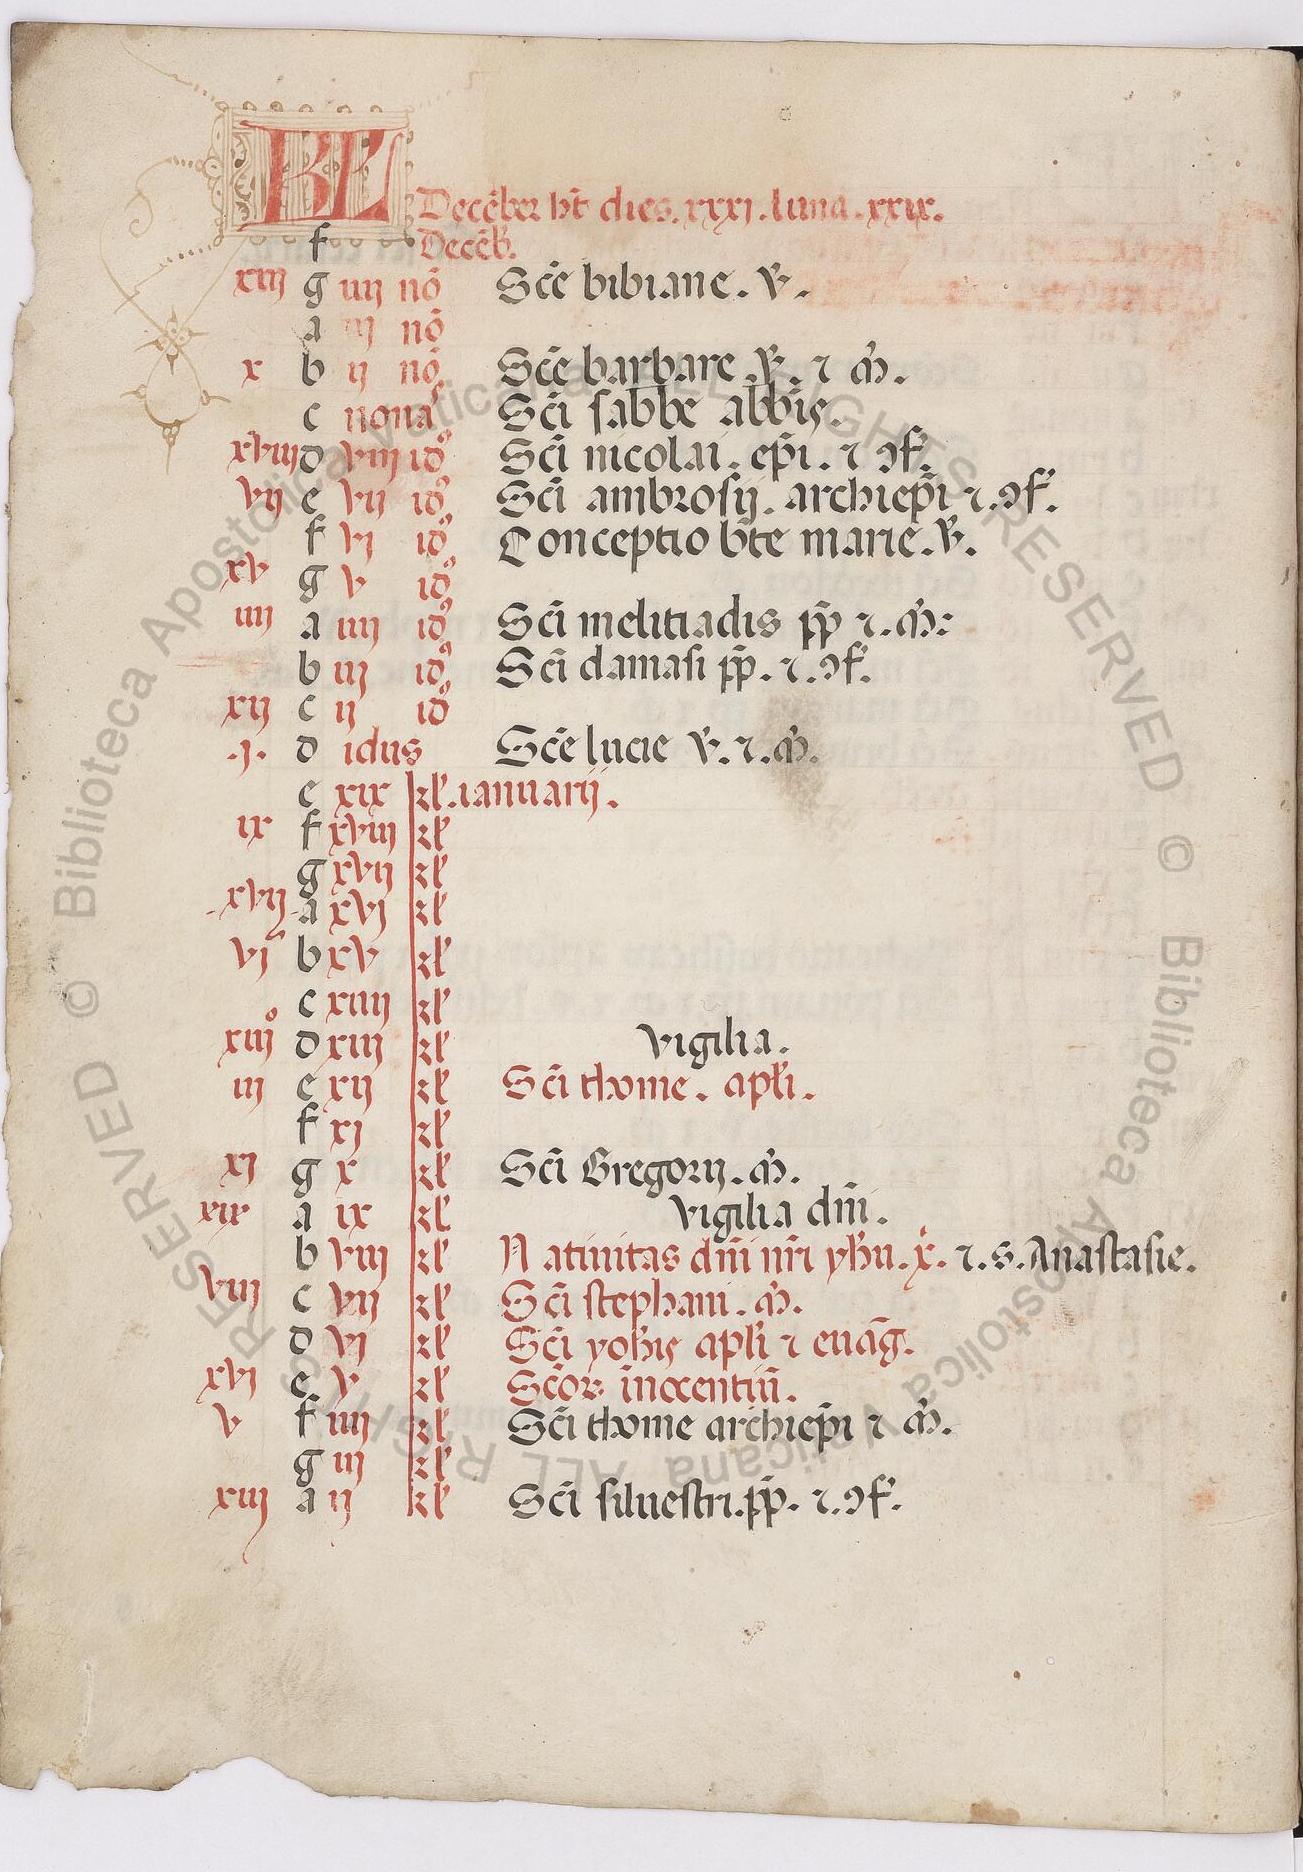 KL Decēber ht̄ dies. xxxj. luna. xxix.
f Decēb̄.
xiij g iiij nō Scē bibiane. v̄.
a iij nō
x b ij nō Scē barbare. v̄. ⁊ m̄.
c nonas Scī sabbe abb̄is.
xviij d viij id9 Scī nicolai. ep̄i. ⁊ ɔf̄.
vij e vij id9 Scī ambrosij. archiep̄i ⁊. ɔf̄.
f vj id9 Conceptio bt̄e marie. v̄.
xv g v id9
iiij a iiij id9 Scī melitiadis pp̄ ⁊. m̄:
b iij id9 Scī damasi pp̄. ⁊. ɔf̄.
xij c ij id9
.j. d idus Scē lucie v̄. ⁊. m̄.
e xix kl̄. ianuarij.
ix f xviij kl̄
g xvij kl̄
xvij a xvj kl̄
vj b xv kl̄
c xiiij kl̄
xiiij d xiij kl̄ vigilia.
iij e xij kl̄ Scī thome. apl̄i.
f xj kl̄
xj g x kl̄ Scī Gregorij. m̄.
xix a ix kl̄ vigilia dn̄i.
b viij kl̄ Natiuitas dn̄i nr̄i yh̄u. x̄. ⁊. s. Anastasie.
viij c vij kl̄ Scī stephani. m̄.
d vj kl̄ Scī yoh̄is apl̄i ⁊ euāg.
xvj e v kl̄ Scōꝝ īnocentiū.
v f iiij kl̄ Scī thome archiep̄i ⁊ m̄.
g iij kl̄
xiij a ij kl̄ Scī siluestri. pp̄. ⁊. ɔf̄.
© Biblioteca Apostolica Vaticana ALL RIGHTS RESERVED © Biblioteca Apostolica Vaticana ALL RIGHTS RESERVED